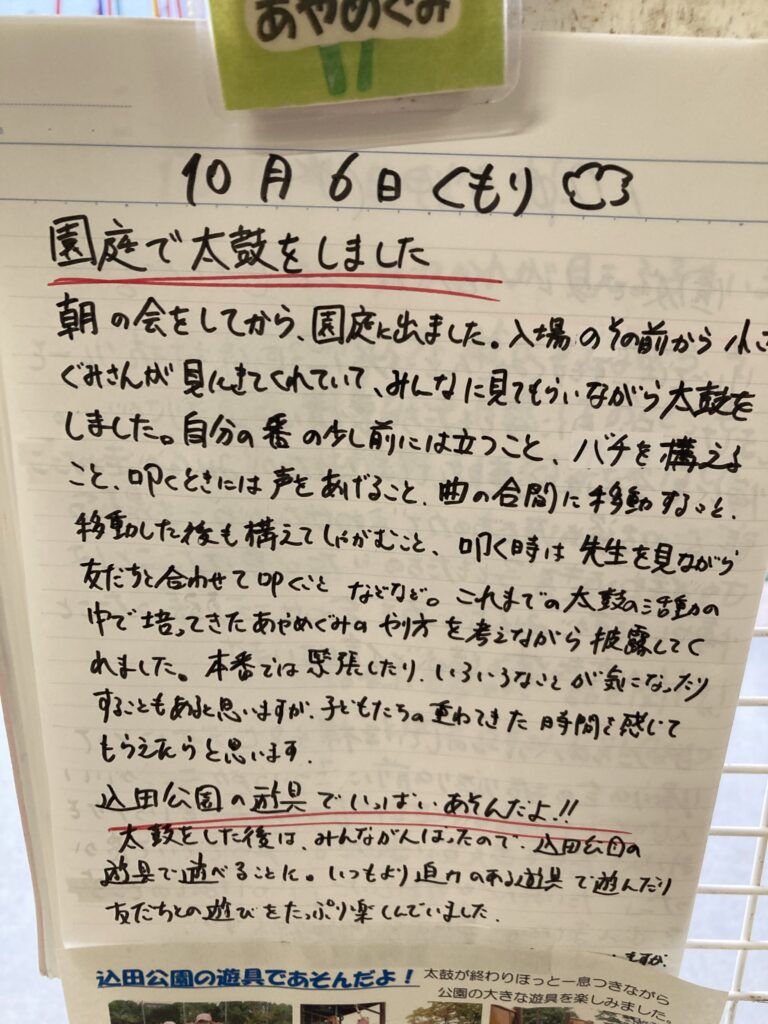 あやめぐみ
10月6日 くもり
園庭で太鼓をしました
朝の会をしてから、園庭に出ました。入場のその前から 小さ
ぐみさんが見にきてくれていて、みんなに見てもらいながら太鼓を
しました。自分の番の少し前には立つこと、バチを構える
こと、叩くときには声をあげること、曲の合間に移動すること、
移動した後も構えてしゃがむこと、叩く時は先生を見ながら
友だちと合わせて叩くこと などなど。これまでの太鼓の活動の
中で培ってきたあやめぐみのやり方を考えながら披露してく
れました。本番では緊張したり、いろいろなことが気になったり
することもあると思いますが、子どもたちの重ねてきた時間を感じて
もらえたらと思います.
込田公園の遊具でいっぱいあそんだよ!!
太鼓をした後は、みんながんばったので、込田公園の
遊具で遊べることに。いつもより迫力のある遊具で遊んだり
友だちとの遊びをたっぷり楽しんでいました.
込田公園の遊具であそんだよ!
太鼓が終わりほっと一息つきながら
公園の大きな遊具を楽しみました。